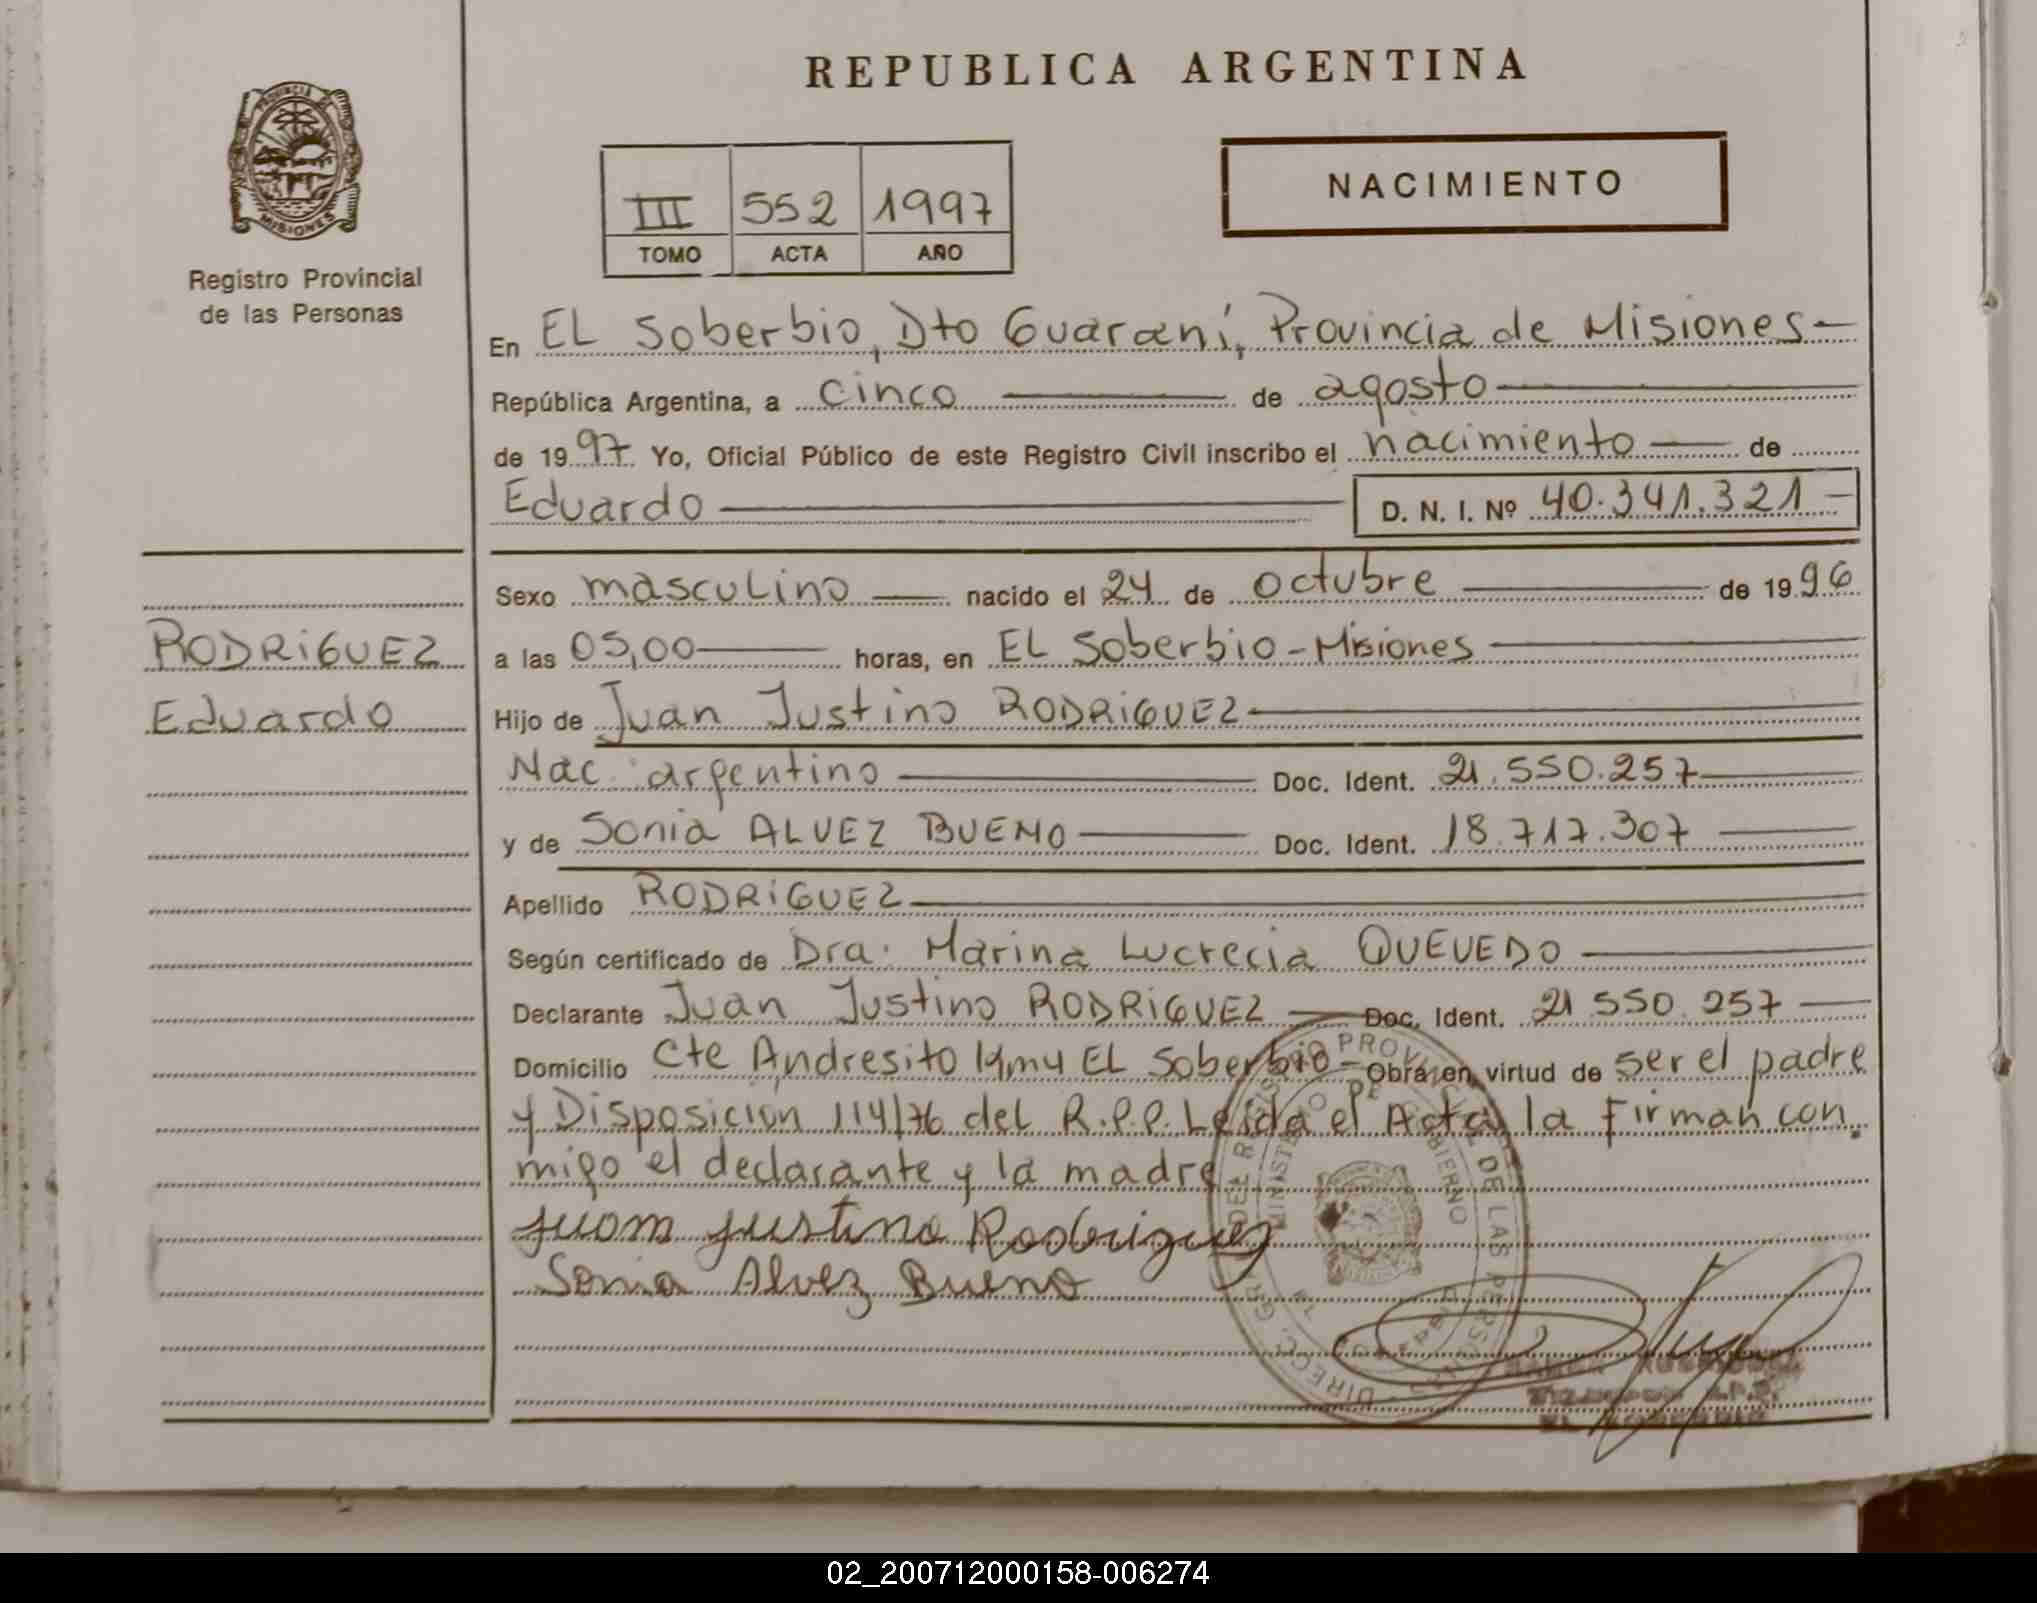 REPUBLICA ARGENTINA
PROVINCIA DE
MISIONES
Registro Provincial
de las Personas
III 552 1997
TOMO ACTA AÑO
NACIMIENTO
En EL Soberbio, Dto Guaraní, Provincia de Misiones
República Argentina, a cinco de agosto
de 1997. Yo, Oficial Público de este Registro Civil inscribo el nacimiento de
Eduardo D. N. I. Nº 40.341.321
Sexo masculino nacido el 24 de octubre de 1996
RODRiGUEZ
Eduardo
a las 05,00 horas, en EL Soberbio - Misiones
Hijo de Juan Justino RODRiGUEZ
Nac. argentino Doc. Ident. 21.550.257
y de Sonia ALVEZ BUENO Doc. Ident. 18.717.307
Apellido RODRiGUEZ
Según certificado de Dra. Marina Lucrecia QUEVEDO
Declarante Juan Justino RODRiGUEZ Doc. Ident. 21.550.257
Domicilio Cte Andresito Km4 EL Soberbio - Obra en virtud de ser el padre
y Disposición 114/76 del R.P.P. Leída el Acta la firman con
migo el declarante y la madre
Juan Justino Rodriguez
Sonia Alvez Bueno
02_200712000158-006274